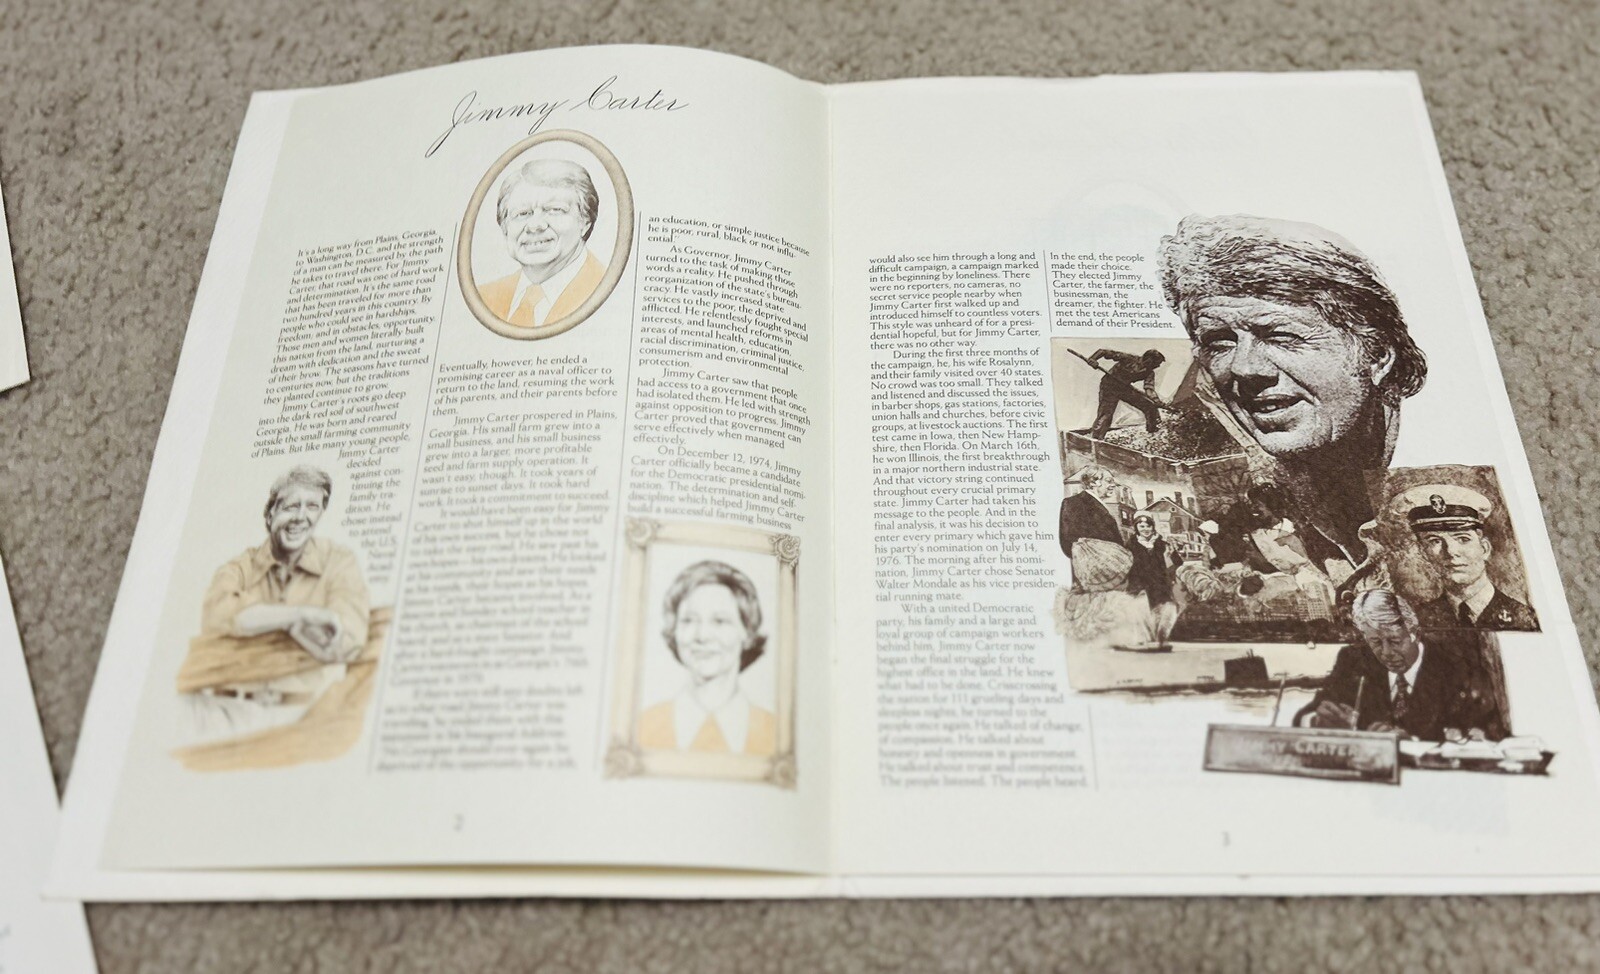 Jimmy Carter
It's a long way from Plains, Georgia,
to Washington, D.C. and the strength
of a man can be measured by the path
he takes to travel there. For Jimmy
Carter, that road was one of hard work
and determination. It's the same road
that has been traveled for more than
two hundred years in this country. By
people who could see in hardships,
freedom, and in obstacles, opportunity.
Those men and women literally built
this nation from the land, nurturing a
dream with dedication and the sweat
of their brow. The seasons have turned
to centuries now, but the traditions
they planted continue to grow.
Jimmy Carter's roots go deep
into the dark red soil of southwest
Georgia. He was born and reared
outside the small farming community
of Plains. But like many young people,
Jimmy Carter
decided
against con-
tinuing the
family tra-
dition. He
chose instead
to attend
the U.S.
Naval
Acad-
emy.
Eventually, however, he ended a
promising career as a naval officer to
return to the land, resuming the work
of his parents, and their parents before
them.
Jimmy Carter prospered in Plains,
Georgia. His small farm grew into a
small business, and his small business
grew into a larger, more profitable
seed and farm supply operation. It
wasn't easy, though. It took years of
sunrise to sunset days. It took hard
work. It took a commitment to succeed.
It would have been easy for Jimmy
Carter to shut himself up in the world
of his own success, but he chose not
to take the easy road. He saw past his
own hopes — his own dreams. He looked
at his community and saw their needs
as his needs, their hopes as his hopes.
Jimmy Carter became involved. As a
deacon and Sunday school teacher in
his church, as chairman of the school
board, and as a state Senator. And
after a hard-fought campaign, Jimmy
Carter was sworn in as Georgia's 76th
Governor in 1970.
If there were still any doubts left
as to what road Jimmy Carter was
traveling, he ended them with this
statement in his inaugural address:
"No Georgian should ever again be
deprived of the opportunity for a job,
an education, or simple justice because
he is poor, rural, black or not influ-
ential."
As Governor, Jimmy Carter
turned to the task of making those
words a reality. He pushed through
reorganization of the state's bureau-
cracy. He vastly increased state
services to the poor, the deprived and
afflicted. He relentlessly fought special
interests, and launched reforms in
areas of mental health, education,
racial discrimination, criminal justice,
consumerism and environmental
protection.
Jimmy Carter saw that people
had access to a government that once
had isolated them. He led with strength
against opposition to progress. Jimmy
Carter proved that government can
serve effectively when managed
effectively.
On December 12, 1974, Jimmy
Carter officially became a candidate
for the Democratic presidential nomi-
nation. The determination and self-
discipline which helped Jimmy Carter
build a successful farming business
2
would also see him through a long and
difficult campaign, a campaign marked
in the beginning by loneliness. There
were no reporters, no cameras, no
secret service people nearby when
Jimmy Carter first walked up and
introduced himself to countless voters.
This style was unheard of for a presi-
dential hopeful, but for Jimmy Carter,
there was no other way.
During the first three months of
the campaign, he, his wife Rosalynn,
and their family visited over 40 states.
No crowd was too small. They talked
and listened and discussed the issues,
in barber shops, gas stations, factories,
union halls and churches, before civic
groups, at livestock auctions. The first
test came in Iowa, then New Hamp-
shire, then Florida. On March 16th,
he won Illinois, the first breakthrough
in a major northern industrial state.
And that victory string continued
throughout every crucial primary
state. Jimmy Carter had taken his
message to the people. And in the
final analysis, it was his decision to
enter every primary which gave him
his party's nomination on July 14,
1976. The morning after his nomi-
nation, Jimmy Carter chose Senator
Walter Mondale as his vice presiden-
tial running mate.
With a united Democratic
party, his family and a large and
loyal group of campaign workers
behind him, Jimmy Carter now
began the final struggle for the
highest office in the land. He knew
what had to be done. Crisscrossing
the nation for 111 grueling days and
sleepless nights, he turned to the
people once again. He talked of change,
of compassion. He talked about
honesty and openness in government.
He talked about trust and competence.
The people listened. The people heard.
In the end, the people
made their choice.
They elected Jimmy
Carter, the farmer, the
businessman, the
dreamer, the fighter. He
met the test Americans
demand of their President.
JIMMY CARTER
3